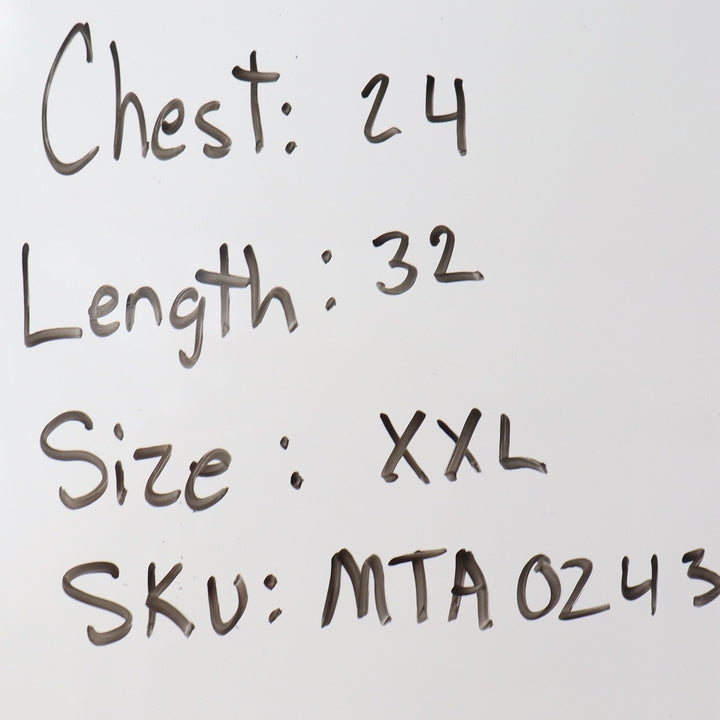 Chest: 24
Length: 32
Size: XXL
SKU: MTA0243